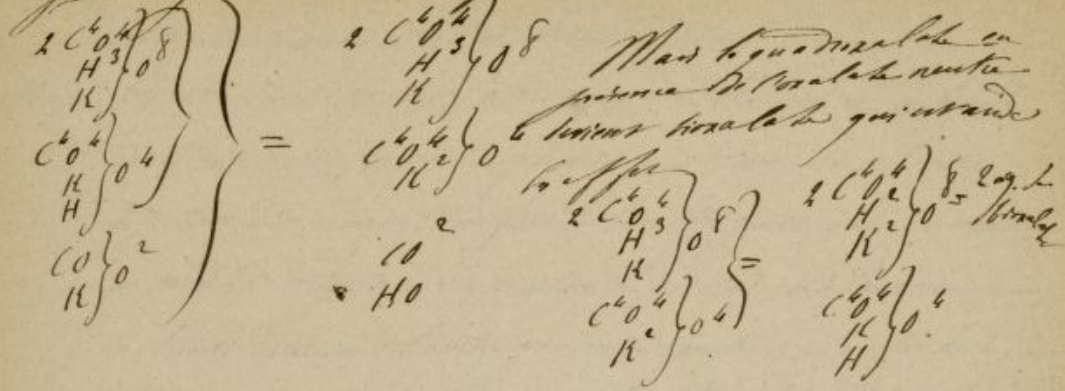 2 C⁴O⁴
H³ } O⁸
K
C⁴O⁴
K } O⁴
H
CO
K } O²
=
2 C⁴O⁴
H³ } O⁸
K
C⁴O⁴
K² } O⁴
CO²
HO
Mais le quadroxalate en
présence de l'oxalate neutre
devient bioxalate qui
en effet
2 C⁴O⁴
H³ } O⁸
K
C⁴O⁴
K² } O⁴
=
2 C⁴O²
H² } O⁸
K²
= 2 eq. de
bioxalate
C⁴O⁴
K } O⁴
H